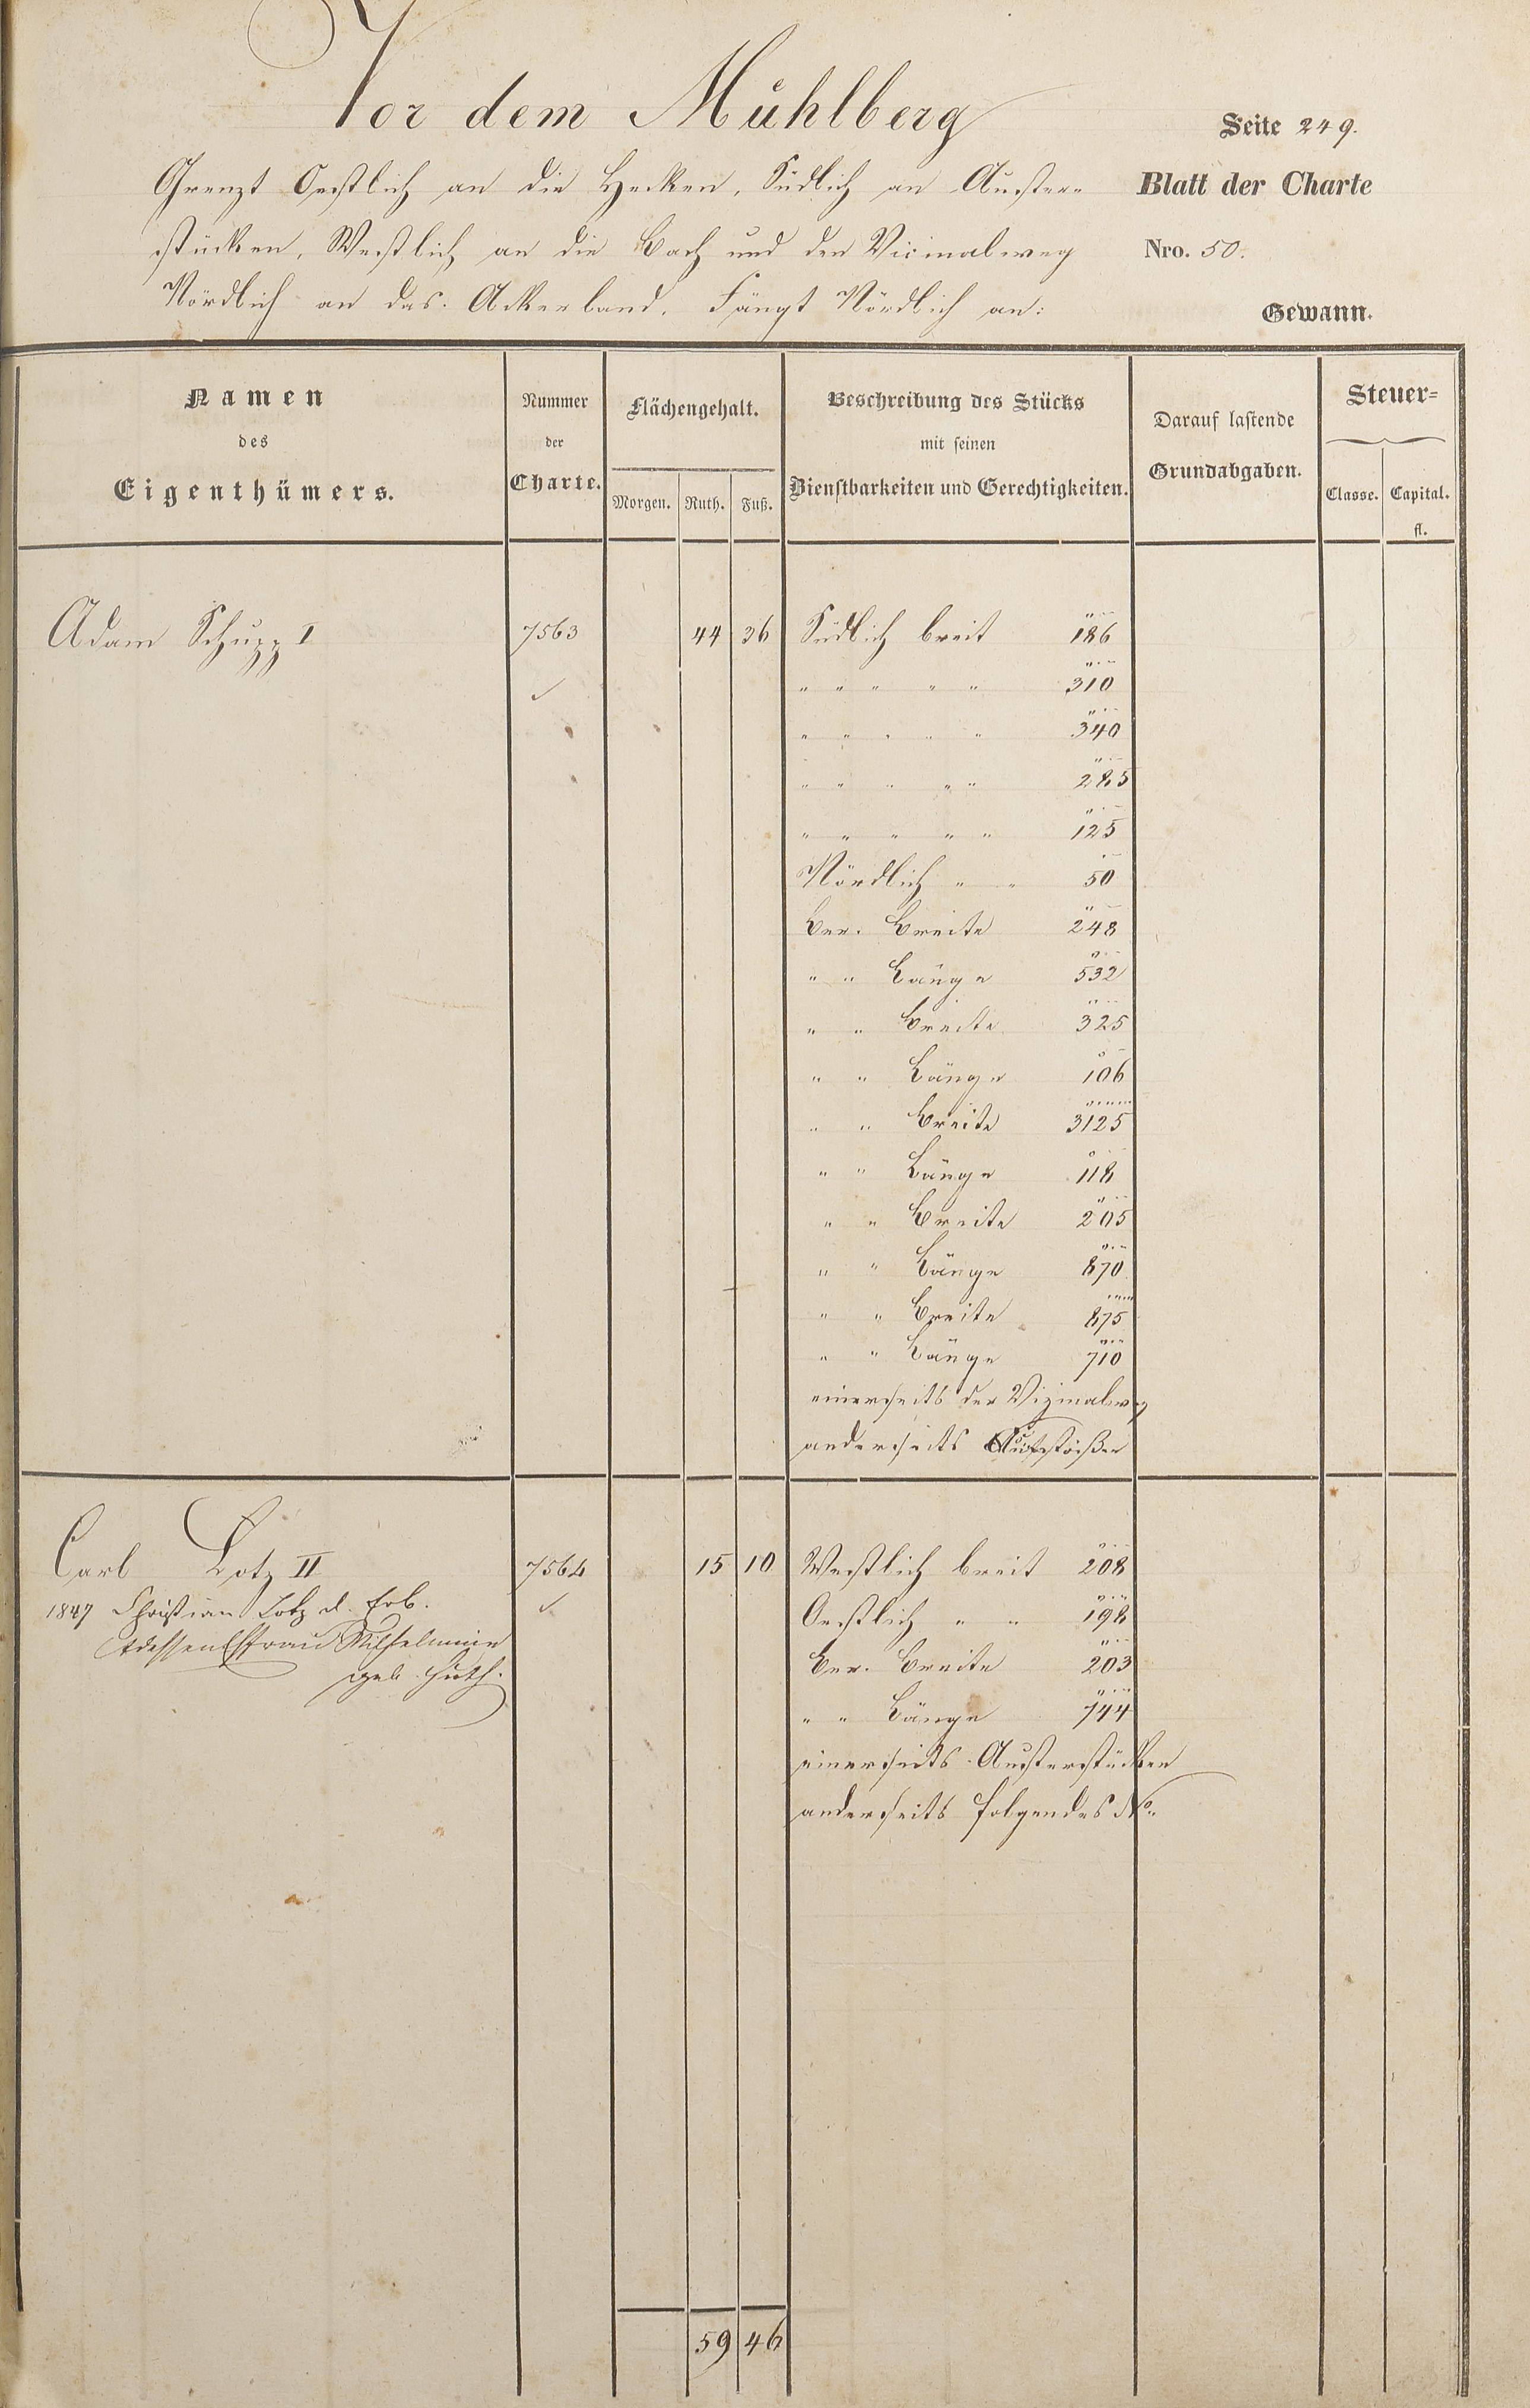 Vor dem Mühlberg
Seite 249.
Grenzt Oestlich an die Hecken, Südlich an Auster-
Blatt der Charte
stücken, Westlich an die Bach und den Vicinalweg
Nro. 50.
Nördlich an das Ackerland. Fängt Nördlich an:
Gewann.
Namen
des
Eigenthümers.
Nummer
der
Charte.
Flächengehalt.
Morgen. Ruth. Fuß.
Beschreibung des Stücks
mit seinen
Dienstbarkeiten und Gerechtigkeiten.
Darauf lastende
Grundabgaben.
Steuer=
Classe. Capital.
fl.
Adam Schupp I 7563 44 36 Südlich breit 186
" " " " " 310
" " " " " 340
" " " " " 285
" " " " " 125
Nördlich " " 50
Ber. Breite 248
" " Länge 532
" " Breite 325
" " Länge 106
" " Breite 3125
" " Länge 118
" " Breite 205
" " Länge 870
" " Breite 875
" " Länge 710
einerseits der Vizinalweg
anderseits Aufstößer
Carl Lotz II 7564 15 10 Westlich breit 208
1847 Christian Lotz d. Erb.
Oestlich " " 198
dessen Ehfrau Wilhelmine
Ber. Breite 203
geb. Huth.
" " Länge 744
einerseits Austerstücken
anderseits folgendes No.
59 46